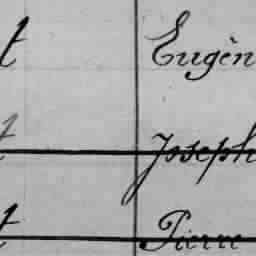 t Eugèn
t Joseph
t Pierre